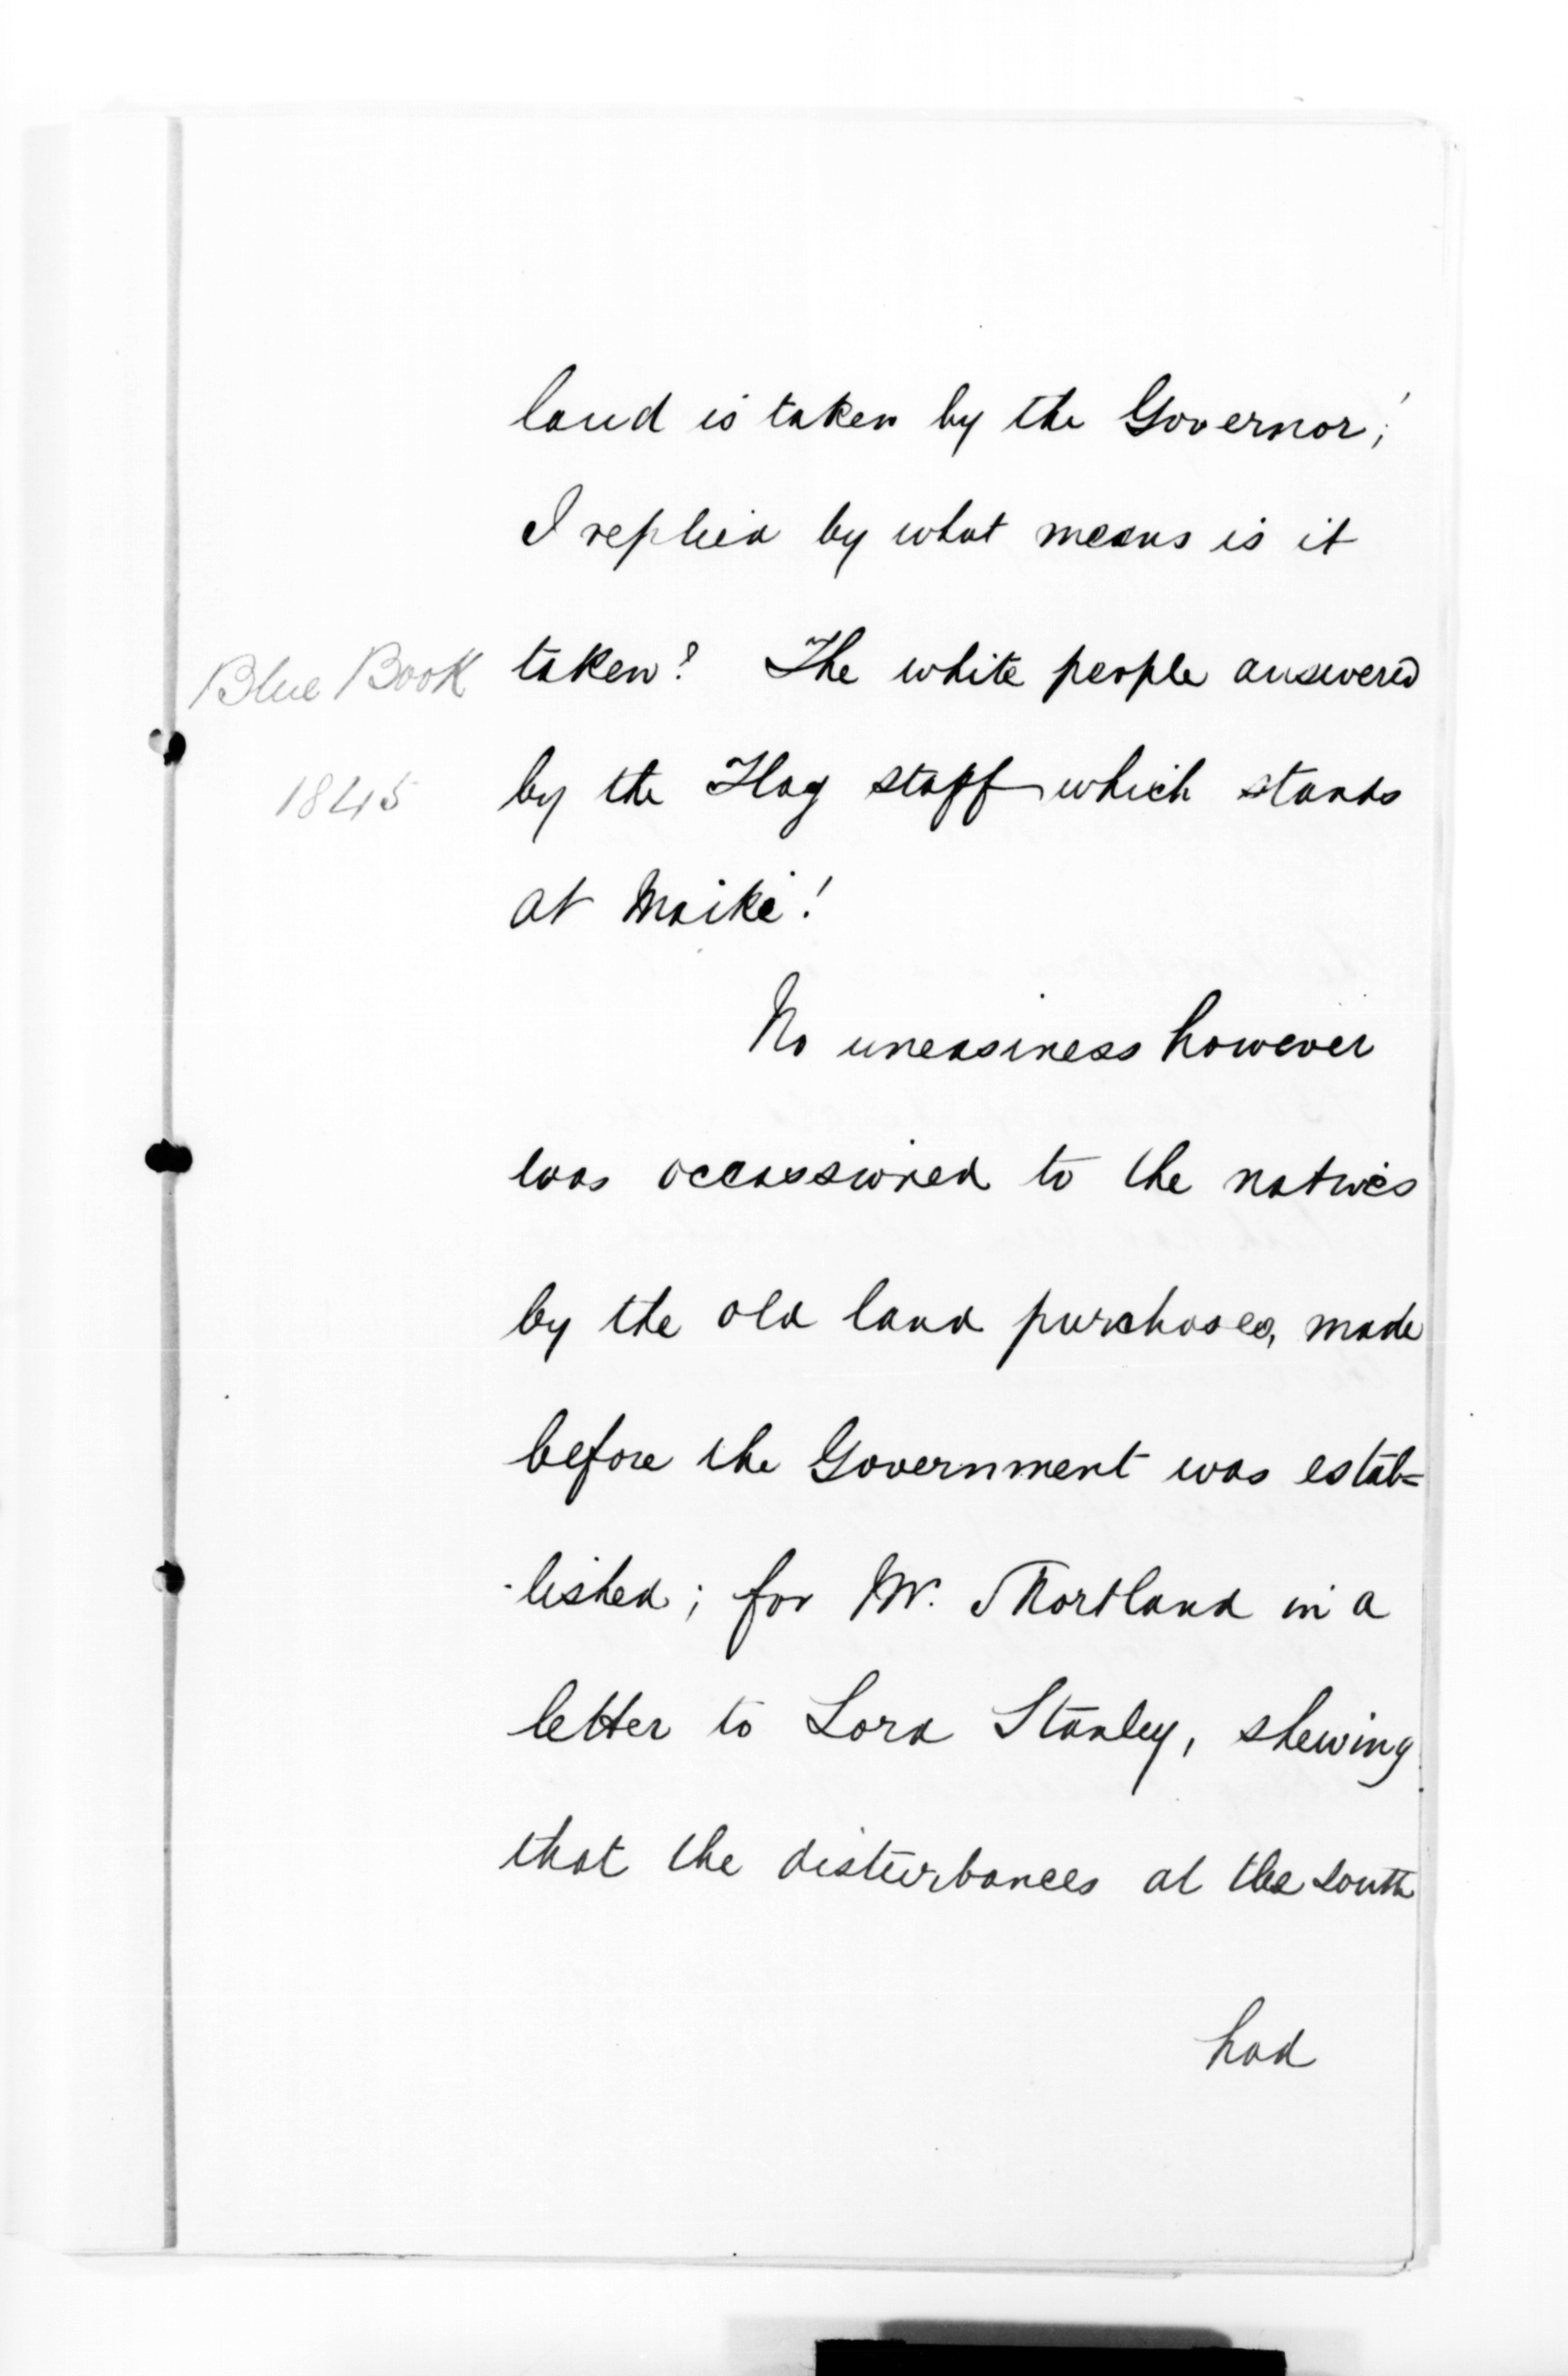 land is taken by the Governor;'
I replied by what means is it
Blue Book
taken? The white people answered
1845
by the Flag staff which stands
at Maiki!
No uneasiness however
was occassioned to the natives
by the old land purchases, made
before the Government was estab=
-lished; for Mr. Shortland in a
letter to Lord Stanley, shewing
that the disturbances at the south
had